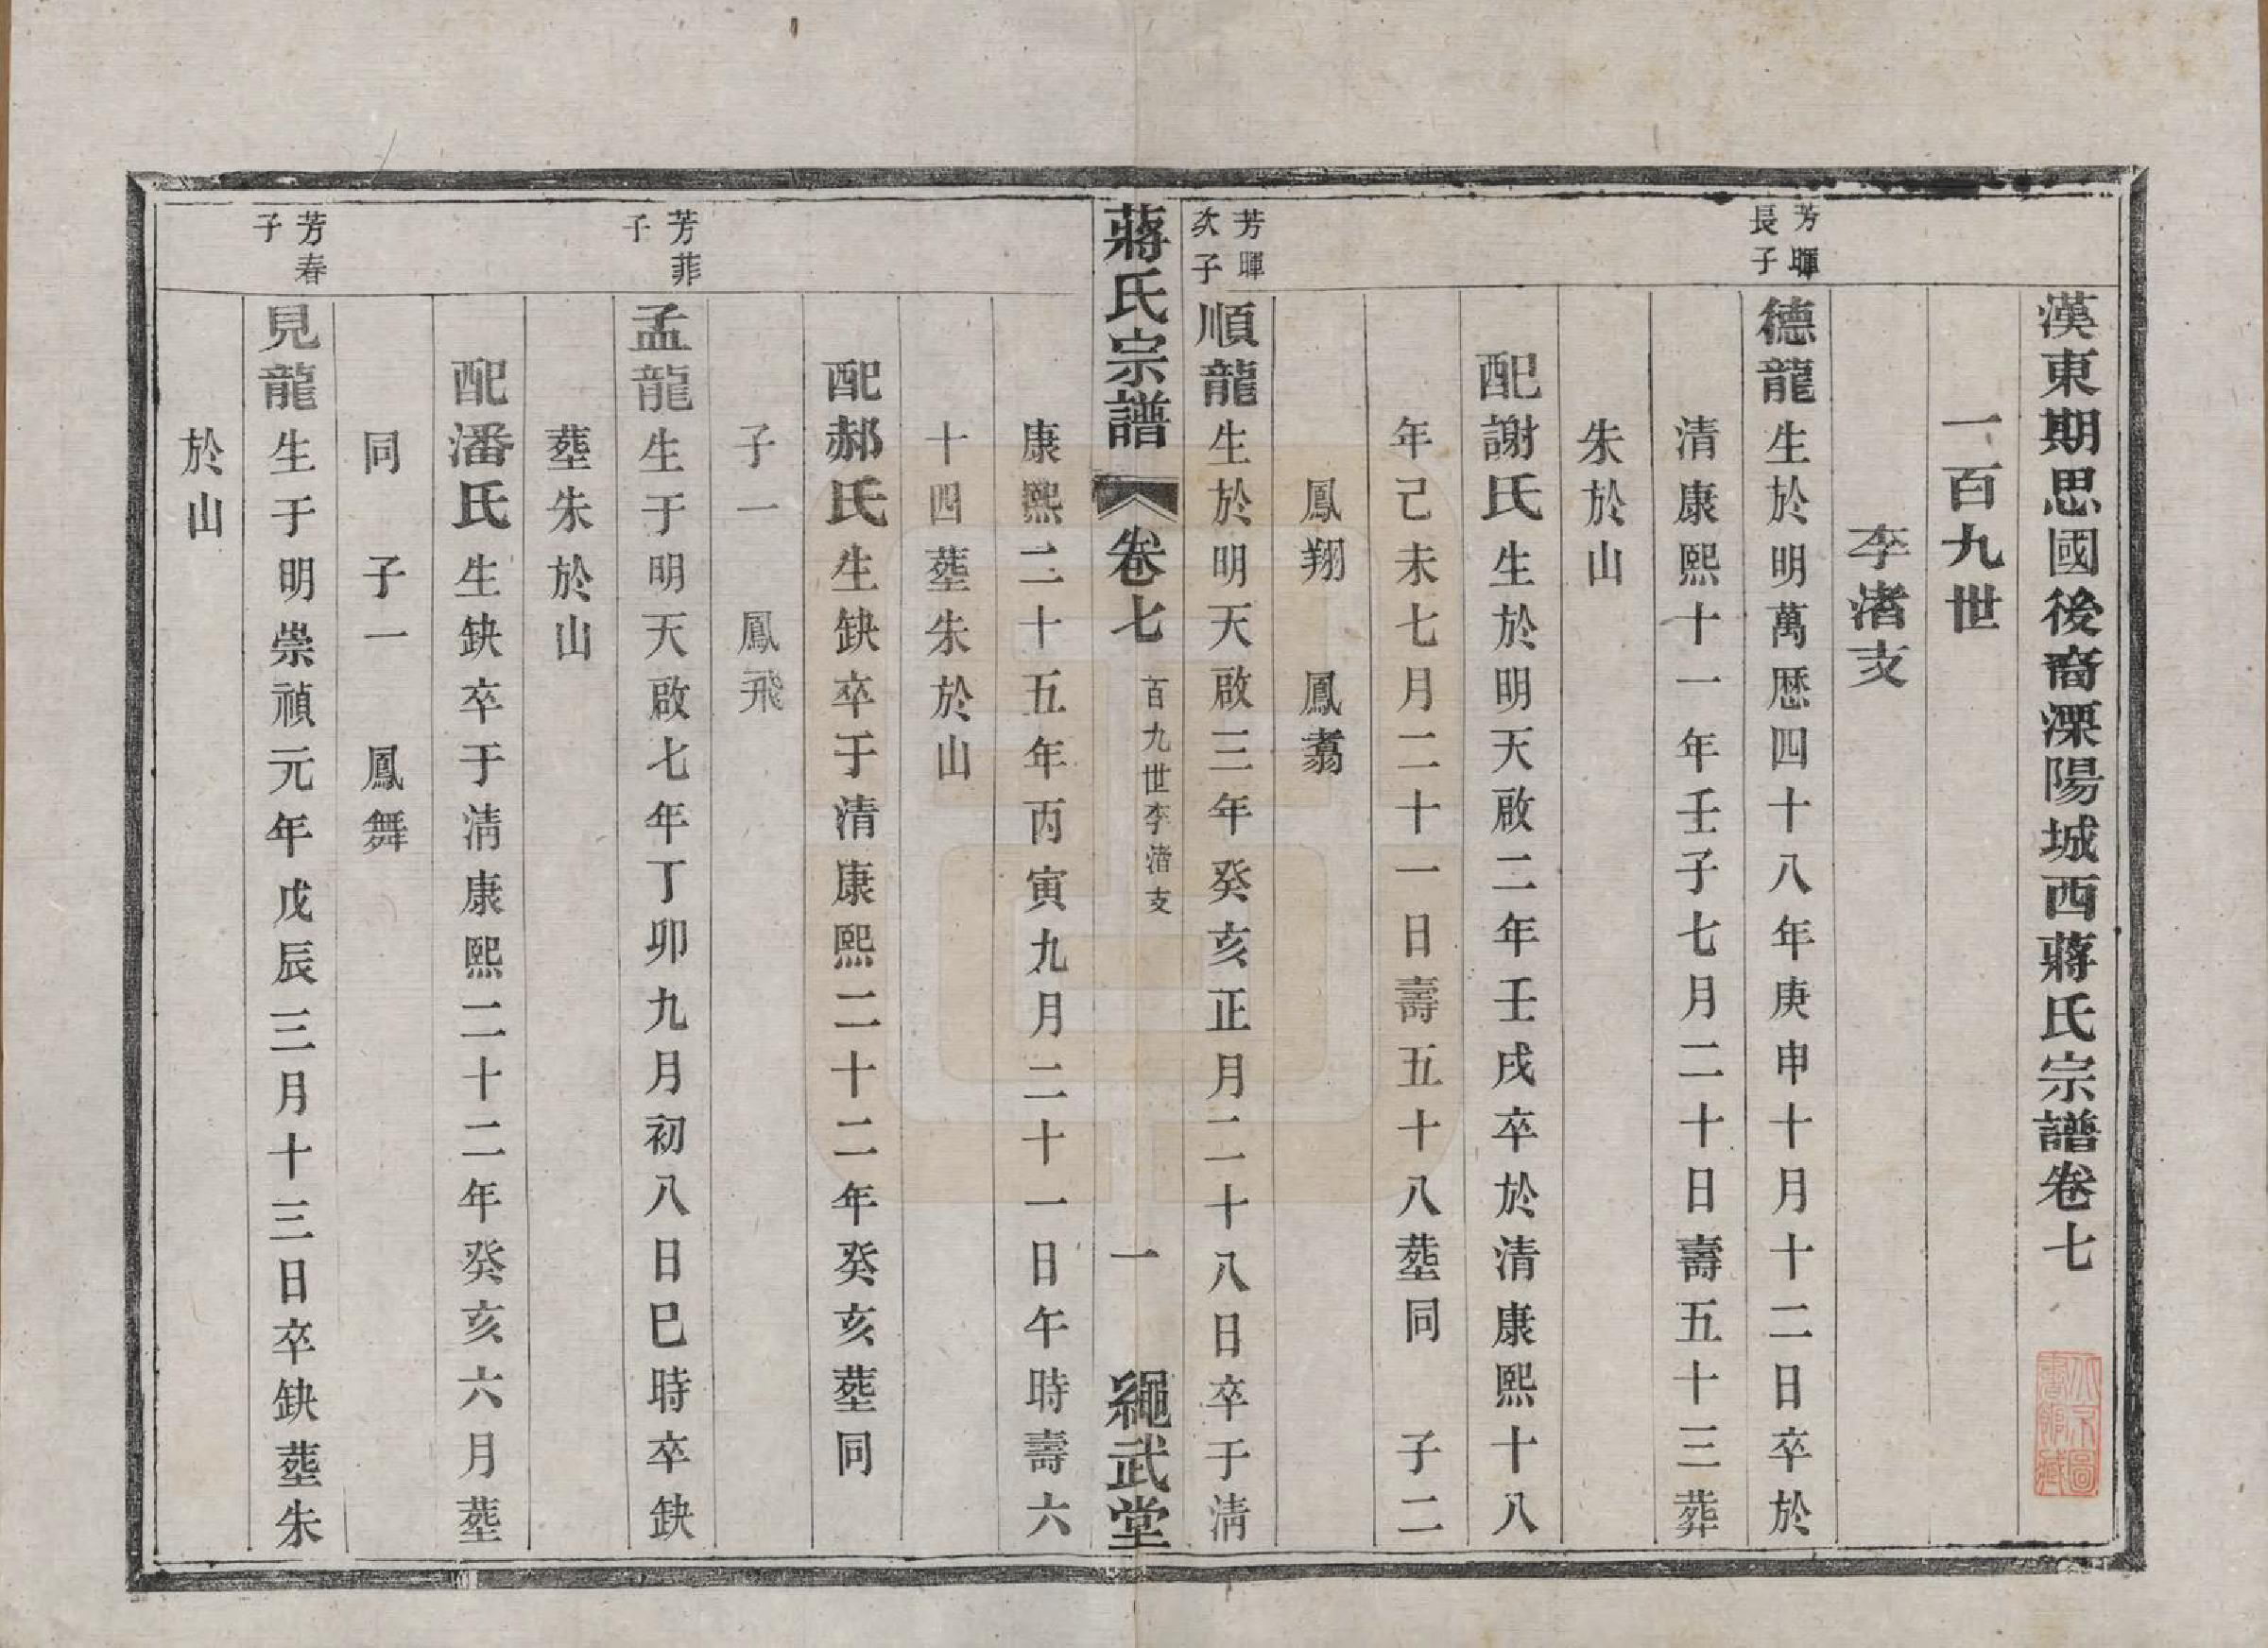 漢東期思國後裔溧陽城西蔣氏宗譜卷七
一百九世
李渚支
芳暉
長子
德龍生於明萬歷四十八年庚申十月十二日卒於
清康熙十一年壬子七月二十日壽五十三葬
朱於山
配謝氏生於明天啟二年壬戌卒於清康熙十八
年己未七月二十一日壽五十八塟同 子二
鳳翔 鳳翥
芳暉
次子
順龍生於明天啟三年癸亥正月二十八日卒于清
蔣氏宗譜 卷七 百九世李渚支 一 繩武堂
康熙二十五年丙寅九月二十一日午時壽六
十四塟朱於山
配郝氏生缺卒于清康熙二十二年癸亥塟同
子一 鳳飛
芳菲
子
孟龍生于明天啟七年丁卯九月初八日巳時卒缺
塟朱於山
配潘氏生缺卒于清康熙二十二年癸亥六月塟
同 子一 鳳舞
芳春
子
見龍生于明崇禎元年戊辰三月十三日卒缺塟朱
於山